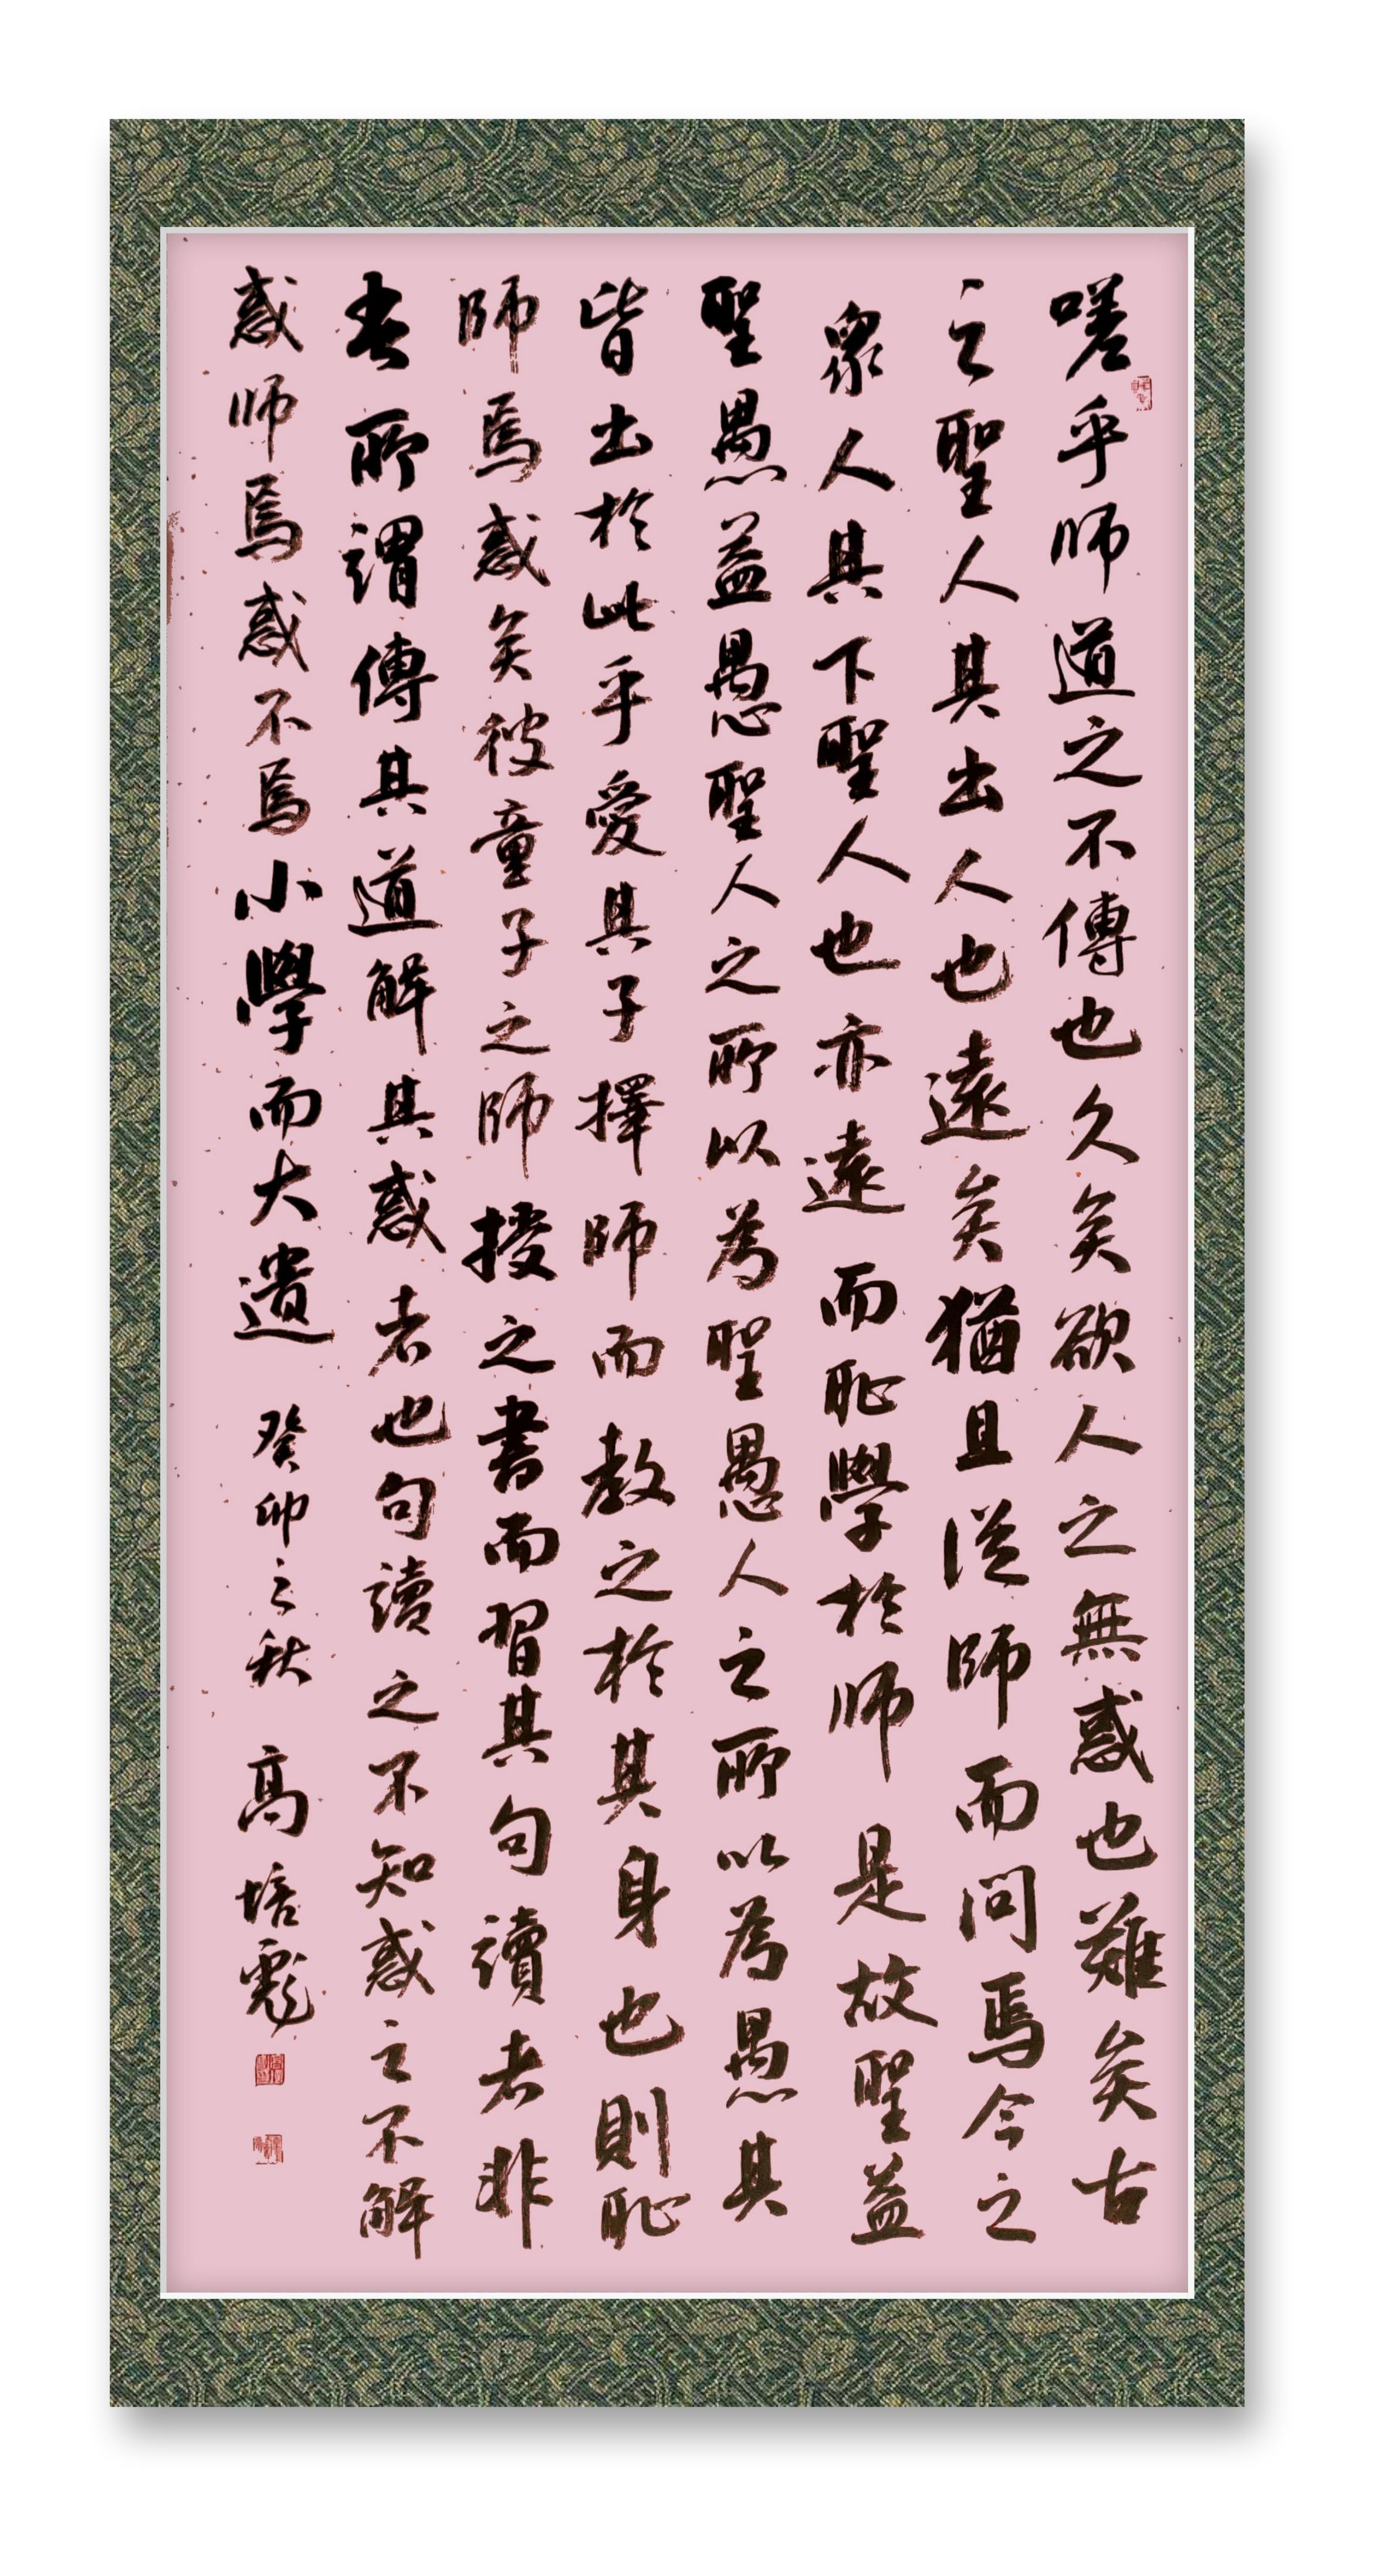 嗟乎師道之不傳也久矣欲人之無惑也難矣古
之聖人其出人也遠矣猶且從師而問焉今之
眾人其下聖人也亦遠而恥學於师是故聖益
聖愚益愚聖人之所以為聖愚人之所以為愚其
皆出於此乎愛其子擇師而教之於其身也則恥
師焉惑矣彼童子之師授之書而習其句讀者非
吾所謂傳其道解其惑者也句讀之不知惑之不解
惑师焉惑不焉小學而大遺
癸卯之秋
高培彪